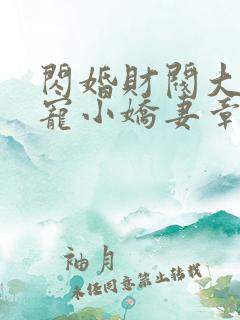 閃婚財閥大
寵小嬌妻章
袖月
未經同意禁止轉載